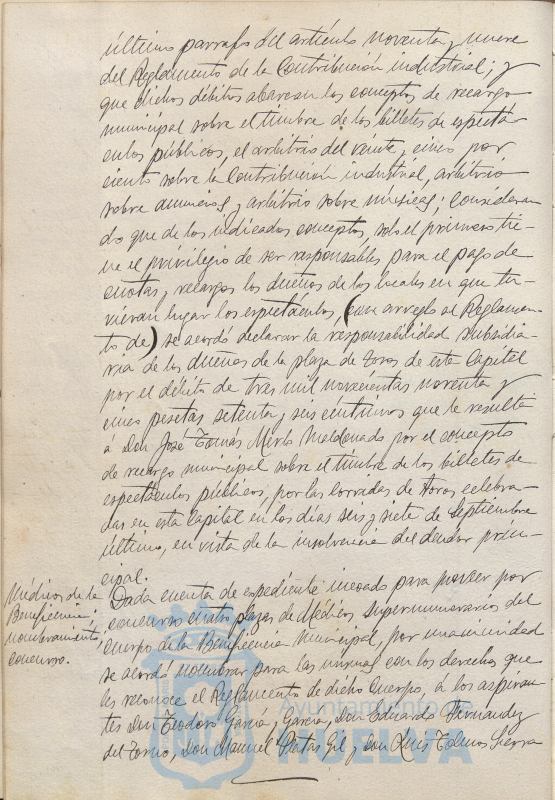 último parrafo del artículo noventa y nueve
del Reglamento de la Contribución industrial; y
que dichos débitos abarcan los conceptos de recargo
municipal sobre el timbre de los billetes de espectá-
culos públicos, el arbitrio del veinte y cinco por
ciento sobre la Contribución industrial, arbitrio
sobre anuncios, y arbitrio sobre musicas; Consideran
do que de los indicados conceptos, solo el primero tie-
ne el privilegio de ser responsables para el pago de
cuotas y recargos los dueños de los locales en que tu-
vieran lugar los espectáculos, (con arreglo al Reglamen-
to de) se acordó declarar la responsabilidad subsidia-
ria de los dueños de la plaza de Toros de esta Capital
por el débito de tres mil novecientas noventa y
cinco pesetas setenta y seis céntimos que le resulta
á Don José Tomás Merlo Maldonado por el concepto
de recargo municipal sobre el timbre de los billetes de
espectáculos públicos, por las corridas de toros celebra-
das en esta Capital en los días seis y siete de Septiembre
último, en vista de la insolvencia del deudor prin-
cipal.
Médicos de la
Beneficencia:
nombramiento,
concurso.
Dada cuenta de expediente incoado para proveer por
concurso cuatro plazas de Médicos supernumerarios del
Cuerpo de la Beneficencia Municipal, por unanimidad
se acordó nombrar para las mismas con los derechos que
les reconoce el Reglamento de dicho Cuerpo, á los aspiran-
tes Don Teodoro Garcia y Garcia, Don Eduardo Fernandez
del Torno, Don Manuel Gil y Don Luis Sierra
Ayuntamiento de
HUELVA